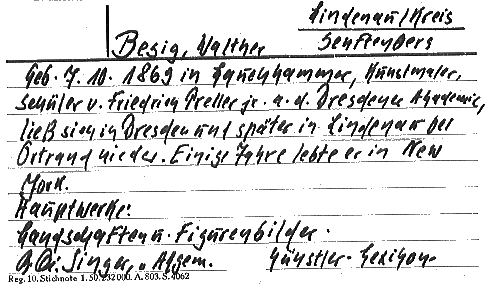 Lindenau/Kreis
Besig, Walther Senftenberg
Geb. 7. 10. 1869 in Lauchhammer, Kunstmaler,
Schüler v. Friedrich Preller jr. a. d. Dresdener Akademie,
ließ sich in Dresden und später in Lindenau bei
Ortrand nieder. Einige Jahre lebte er in New
York.
Hauptwerke:
Landschaften u. Figurenbilder.
Dr. Singer, „Allgem. Künstler-Lexikon
Reg. 10. Stichnote 1. 50. 232000. A. 803. S. 4062